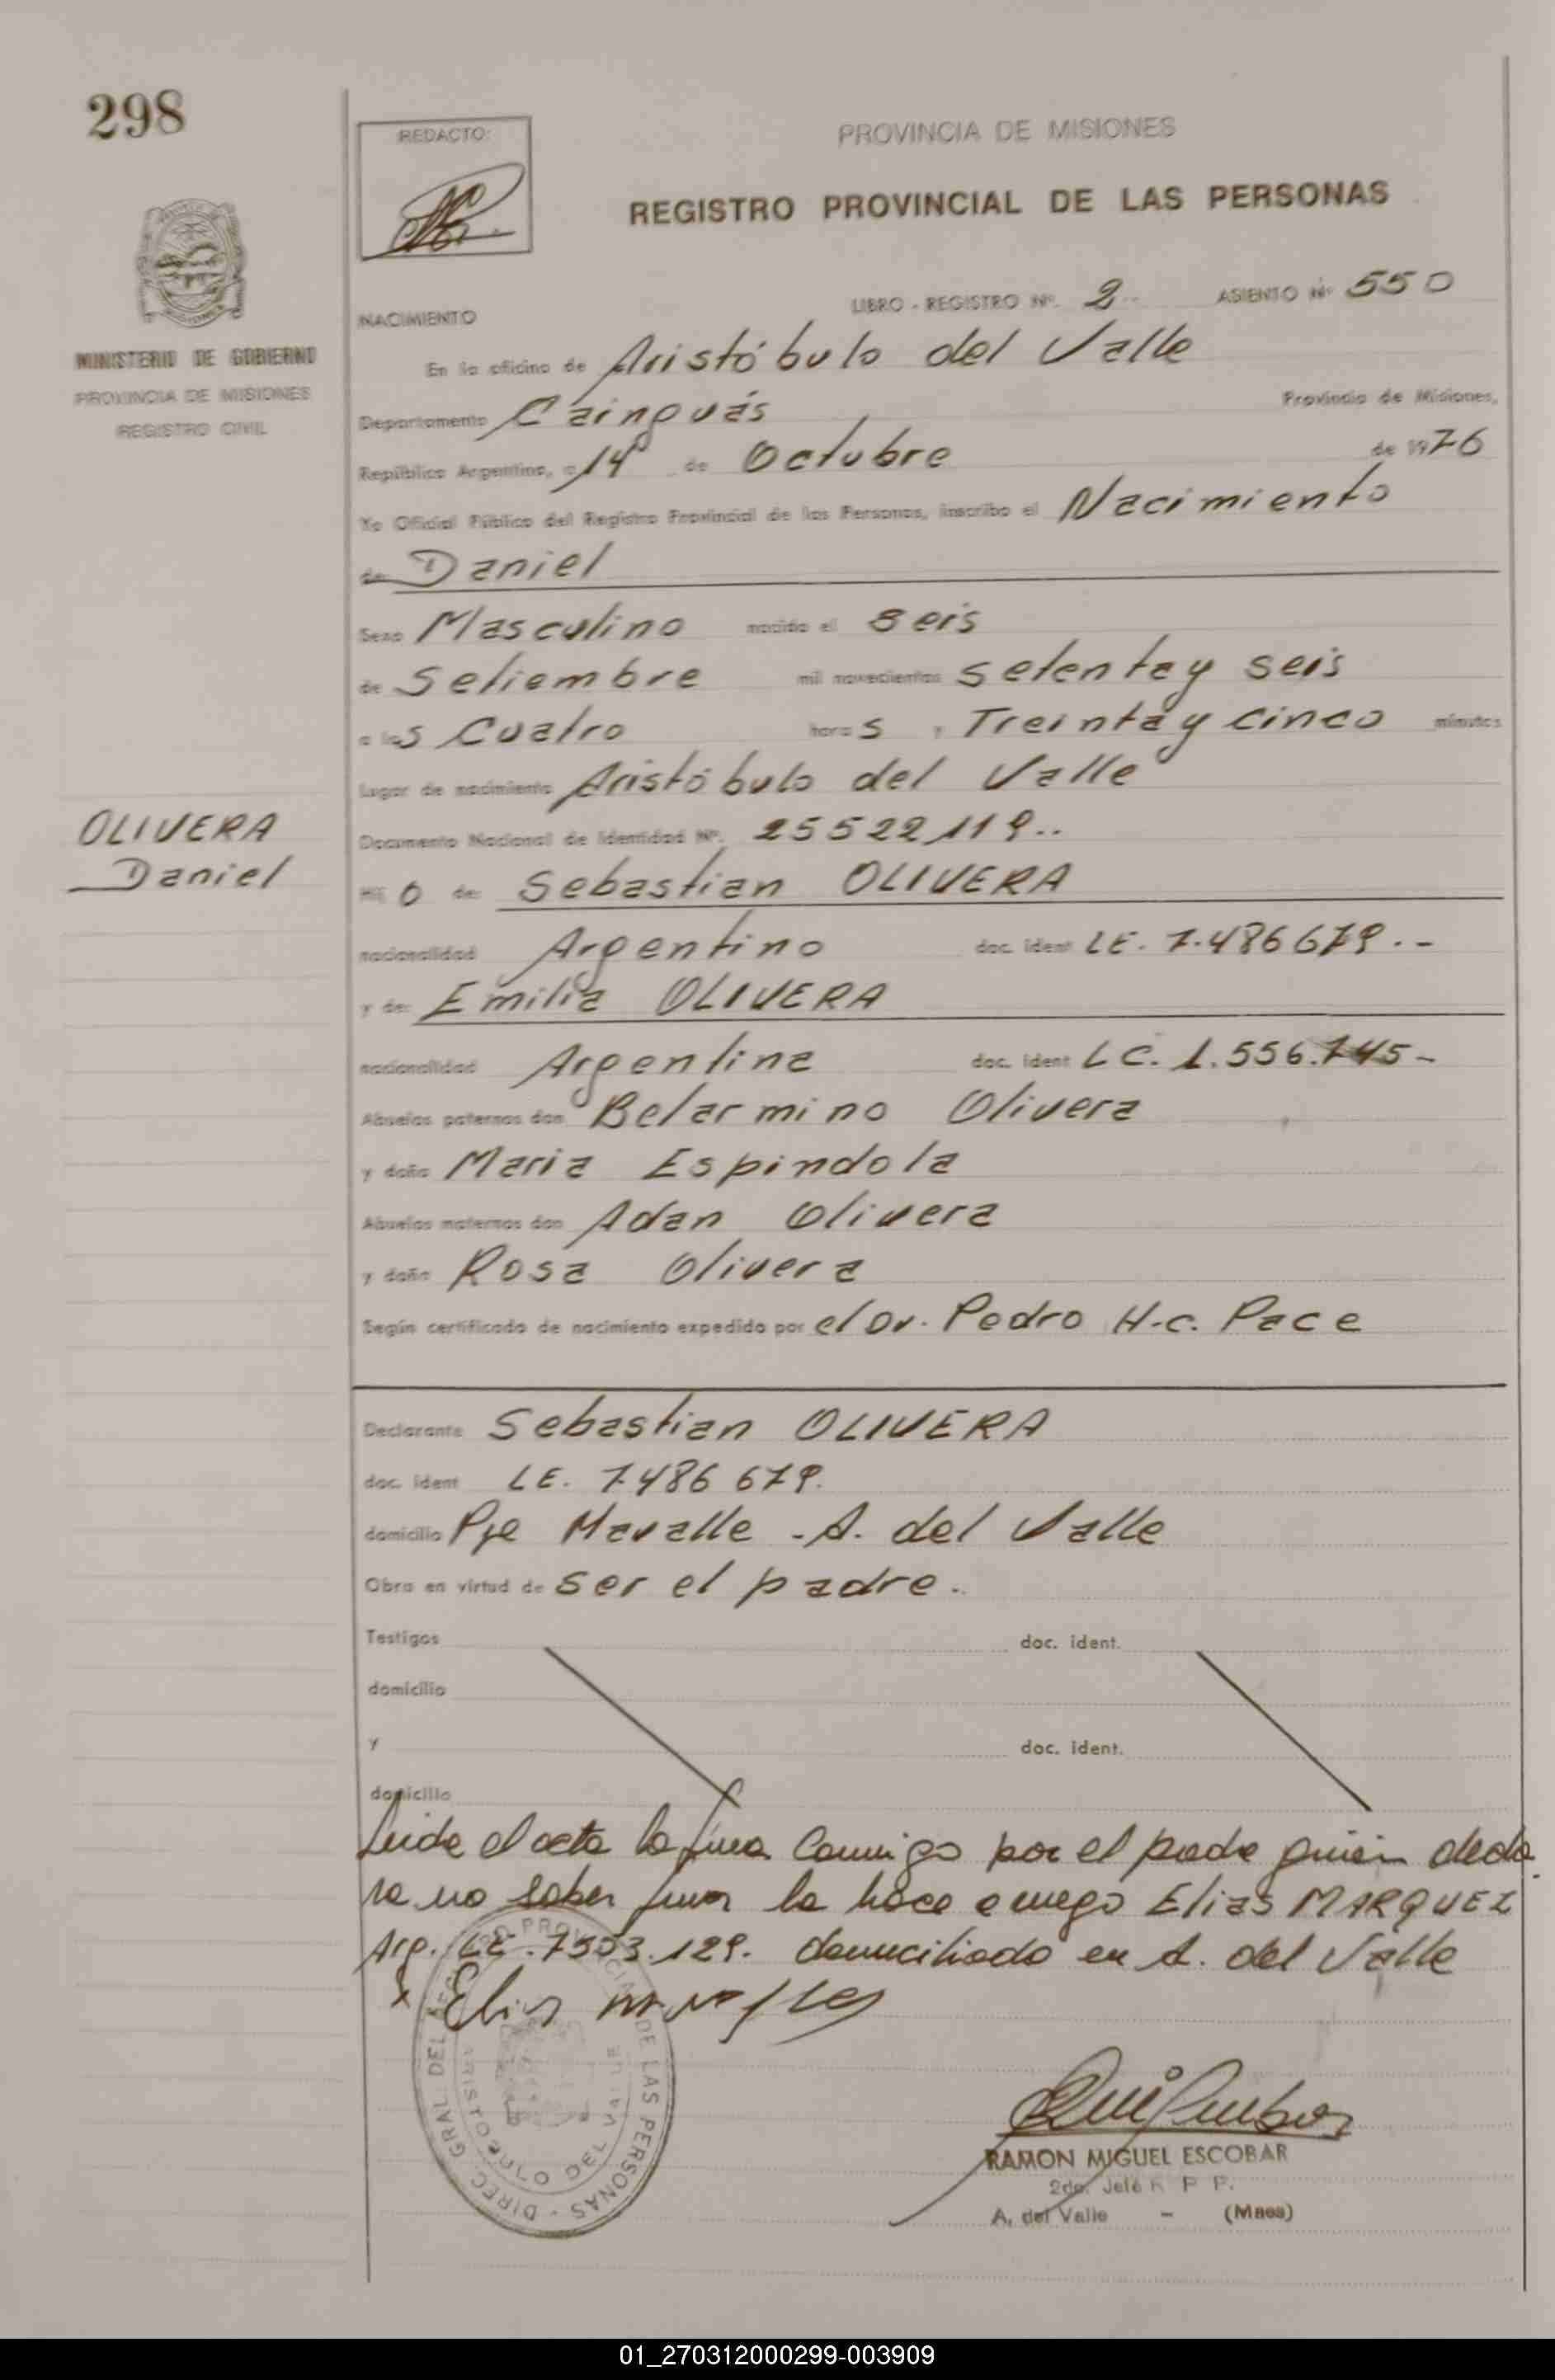 298
REDACTO:
PROVINCIA DE MISIONES
REGISTRO PROVINCIAL DE LAS PERSONAS
MINISTERIO DE GOBIERNO
PROVINCIA DE MISIONES
REGISTRO CIVIL
LIBRO - REGISTRO Nº. 2.. ASIENTO Nº 550
NACIMIENTO
En la oficina de Aristóbulo del Valle
Departamento Cainguás Provincia de Misiones,
República Argentina, a 14 de Octubre de 1976
Yo Oficial Público del Registro Provincial de las Personas, inscribo el Nacimiento
de Daniel
Sexo Masculino nacido el Seis
de Setiembre mil novecientos setenta y seis
a las Cuatro horas y Treinta y cinco minutos
Lugar de nacimiento Aristóbulo del Valle
Documento Nacional de Identidad Nº. 25522119..
OLIVERA
Daniel
Hijo de: Sebastian OLIVERA
nacionalidad Argentino doc. ident LE. 7.486679.-
y de: Emilia OLIVERA
nacionalidad Argentina doc. ident LC. 1.556.745-
Abuelos paternos don Belarmino Olivera
y doña Maria Espindola
Abuelos maternos don Adan Olivera
y doña Rosa Olivera
Según certificado de nacimiento expedido por el Dr. Pedro H.C. Pace
Declarante Sebastian OLIVERA
doc. ident LE. 7.486 679.
domicilio Pje Mavalle - A. del Valle
Obra en virtud de ser el padre.
Testigos doc. ident.
domicilio
y doc. ident.
domicilio
Leida el acta la firma Conmigo por el padre quien decla
ra no saber firmar la hace a ruego Elias MARQUEZ
Arg. LE. 7503.129. domiciliado en A. del Valle
x Elias
DIREC. GRAL. DEL REGISTRO PROVINCIAL DE LAS PERSONAS -
ARISTOBULO DEL VALLE
RAMON MIGUEL ESCOBAR
2do. Jefe R P P.
A. del Valle - (Mnes)
01_270312000299-003909